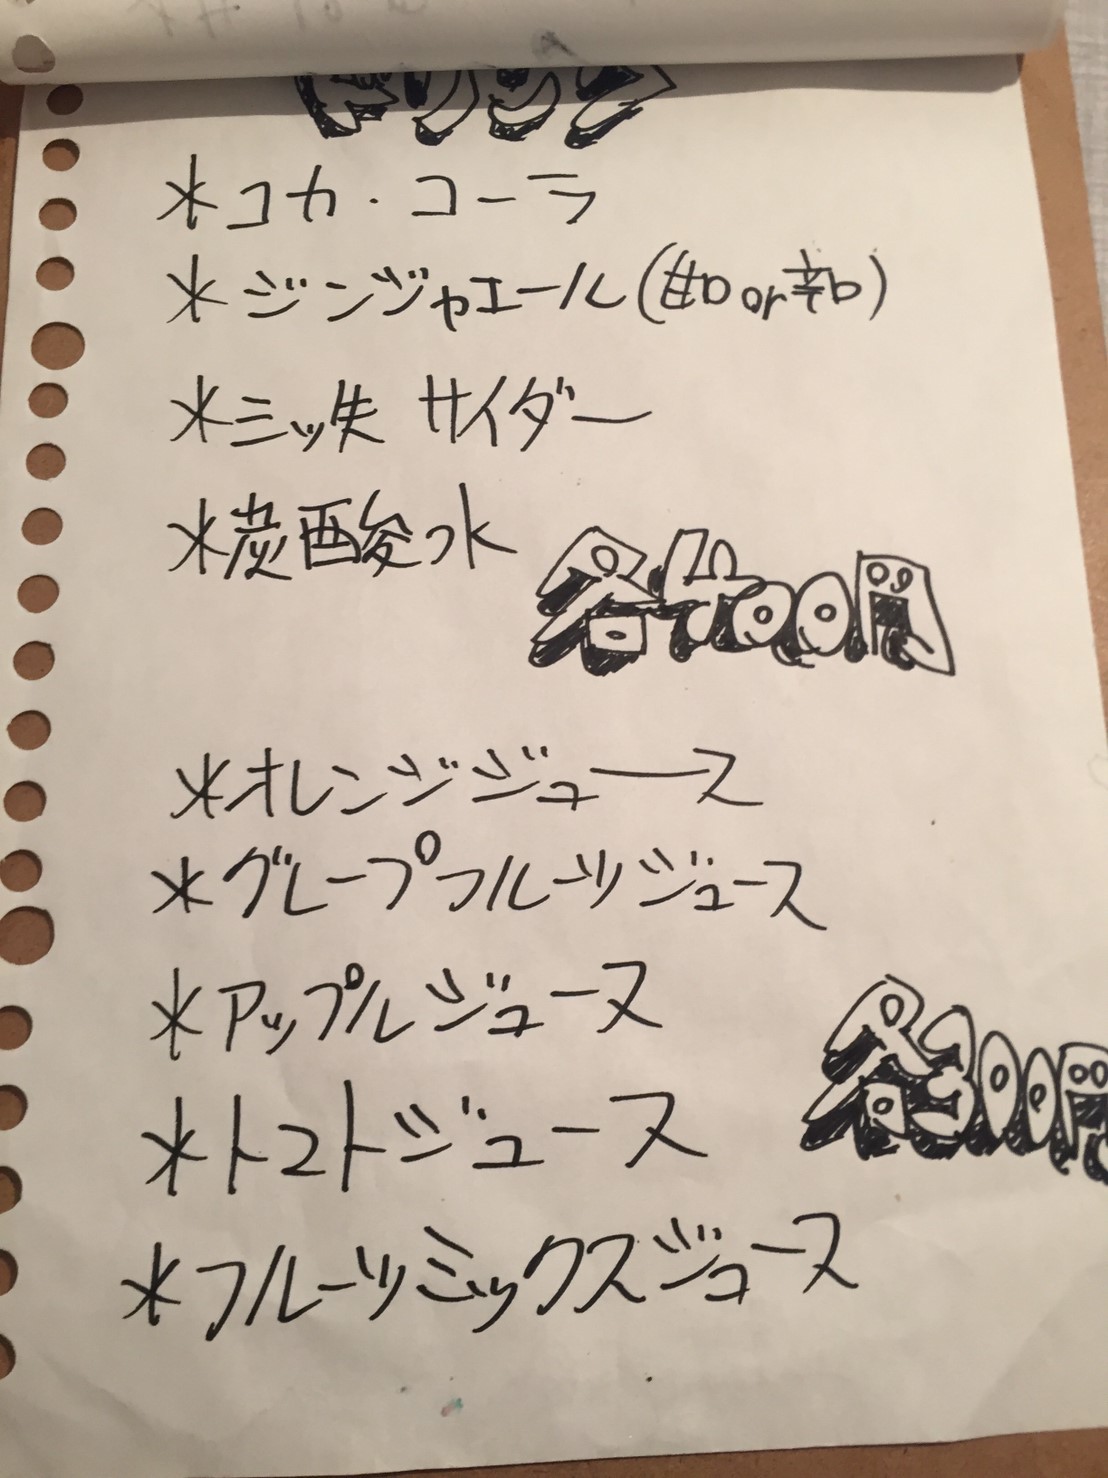 ドリンク
*コカ・コーラ
*ジンジャエール(甘口or辛口)
*三ッ矢 サイダー
*炭酸水
各400円
*オレンジジュース
*グレープフルーツジュース
*アップルジュース
*トマトジュース
各500円
*フルーツミックスジュース